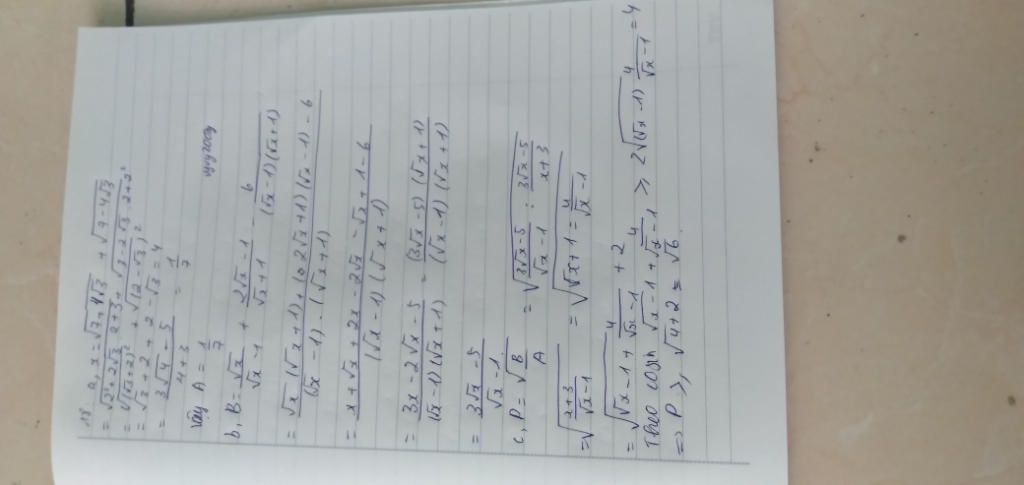 a, x = √7+4√3 + √7-4√3
= √2²+2√3.2+3 + √3-2√3.2+2²
= √(√3+2)² + √(2-√3)²
= √3+2+2-√3=4
= 3√4-5 / 4+3 = 1/7
Vậy A = 1/7
b, B = √x/√x-1 + 2√x-1/√x+1 - 6/(√x-1)(√x+1)
= √x(√x+1)+(2√x+1)(√x-1)-6 / (√x-1)-(√x+1)
= x+√x+2x-2√x-√x+1-6 / (√x-1)(√x+1)
= 3x-2√x-5 / (√x-1)(√x+1) = (3√x-5)(√x+1) / (√x-1)(√x+1)
= 3√x-5 / √x-1
c, P = √B/A = √3√x-5/√x-1 : 3√x-5/x+3
= √x+3/√x-1 = √√x+1=4/√x-1
= √√x-1+4/√x-1+2
Theo cosin √x-1+4/√x-1 ≥ 2√(√x-1)4/√x-1=4
=> P ≥, √4+2 = √6.